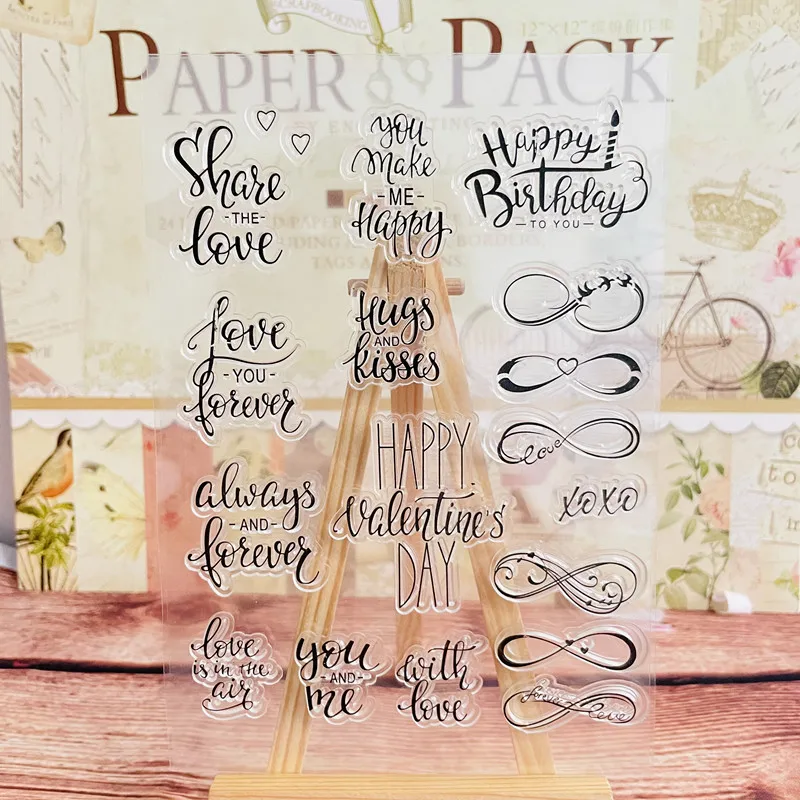 SCRAPBOOKING
12"×12"
PAPER PACK
Share
-THE-
love
you
make
-ME-
Happy
Happy
Birthday
—TO YOU—
love
-YOU-
forever
Hugs
AND
kisses
love
HAPPY
Valentine's
DAY
always
-AND-
forever
xoxo
love
is in the
air
you
-AND-
me
with
love
forever love
TAGS
BORDERS,